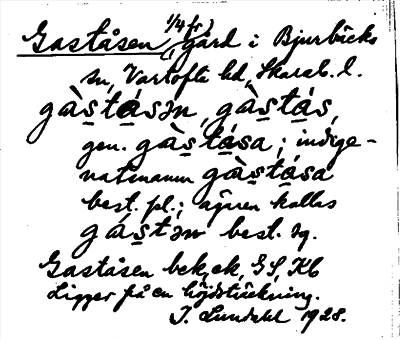 Gaståsen, 1/4 fr) gård i Bjurbäcks
sn, Vartofta hd, Skarab. l.
gàs̲tá̲sən, gàs̲tá̲s,
gen. gàs̲tá̲sa; indige-
natnamn gàs̲tá̲sa
best. pl.; ägaren kallas
gás̲tən best. sg.
Gaståsen bek, ek, GS, Kb
Ligger på en höjdsträckning.
J. Lundahl 1928.